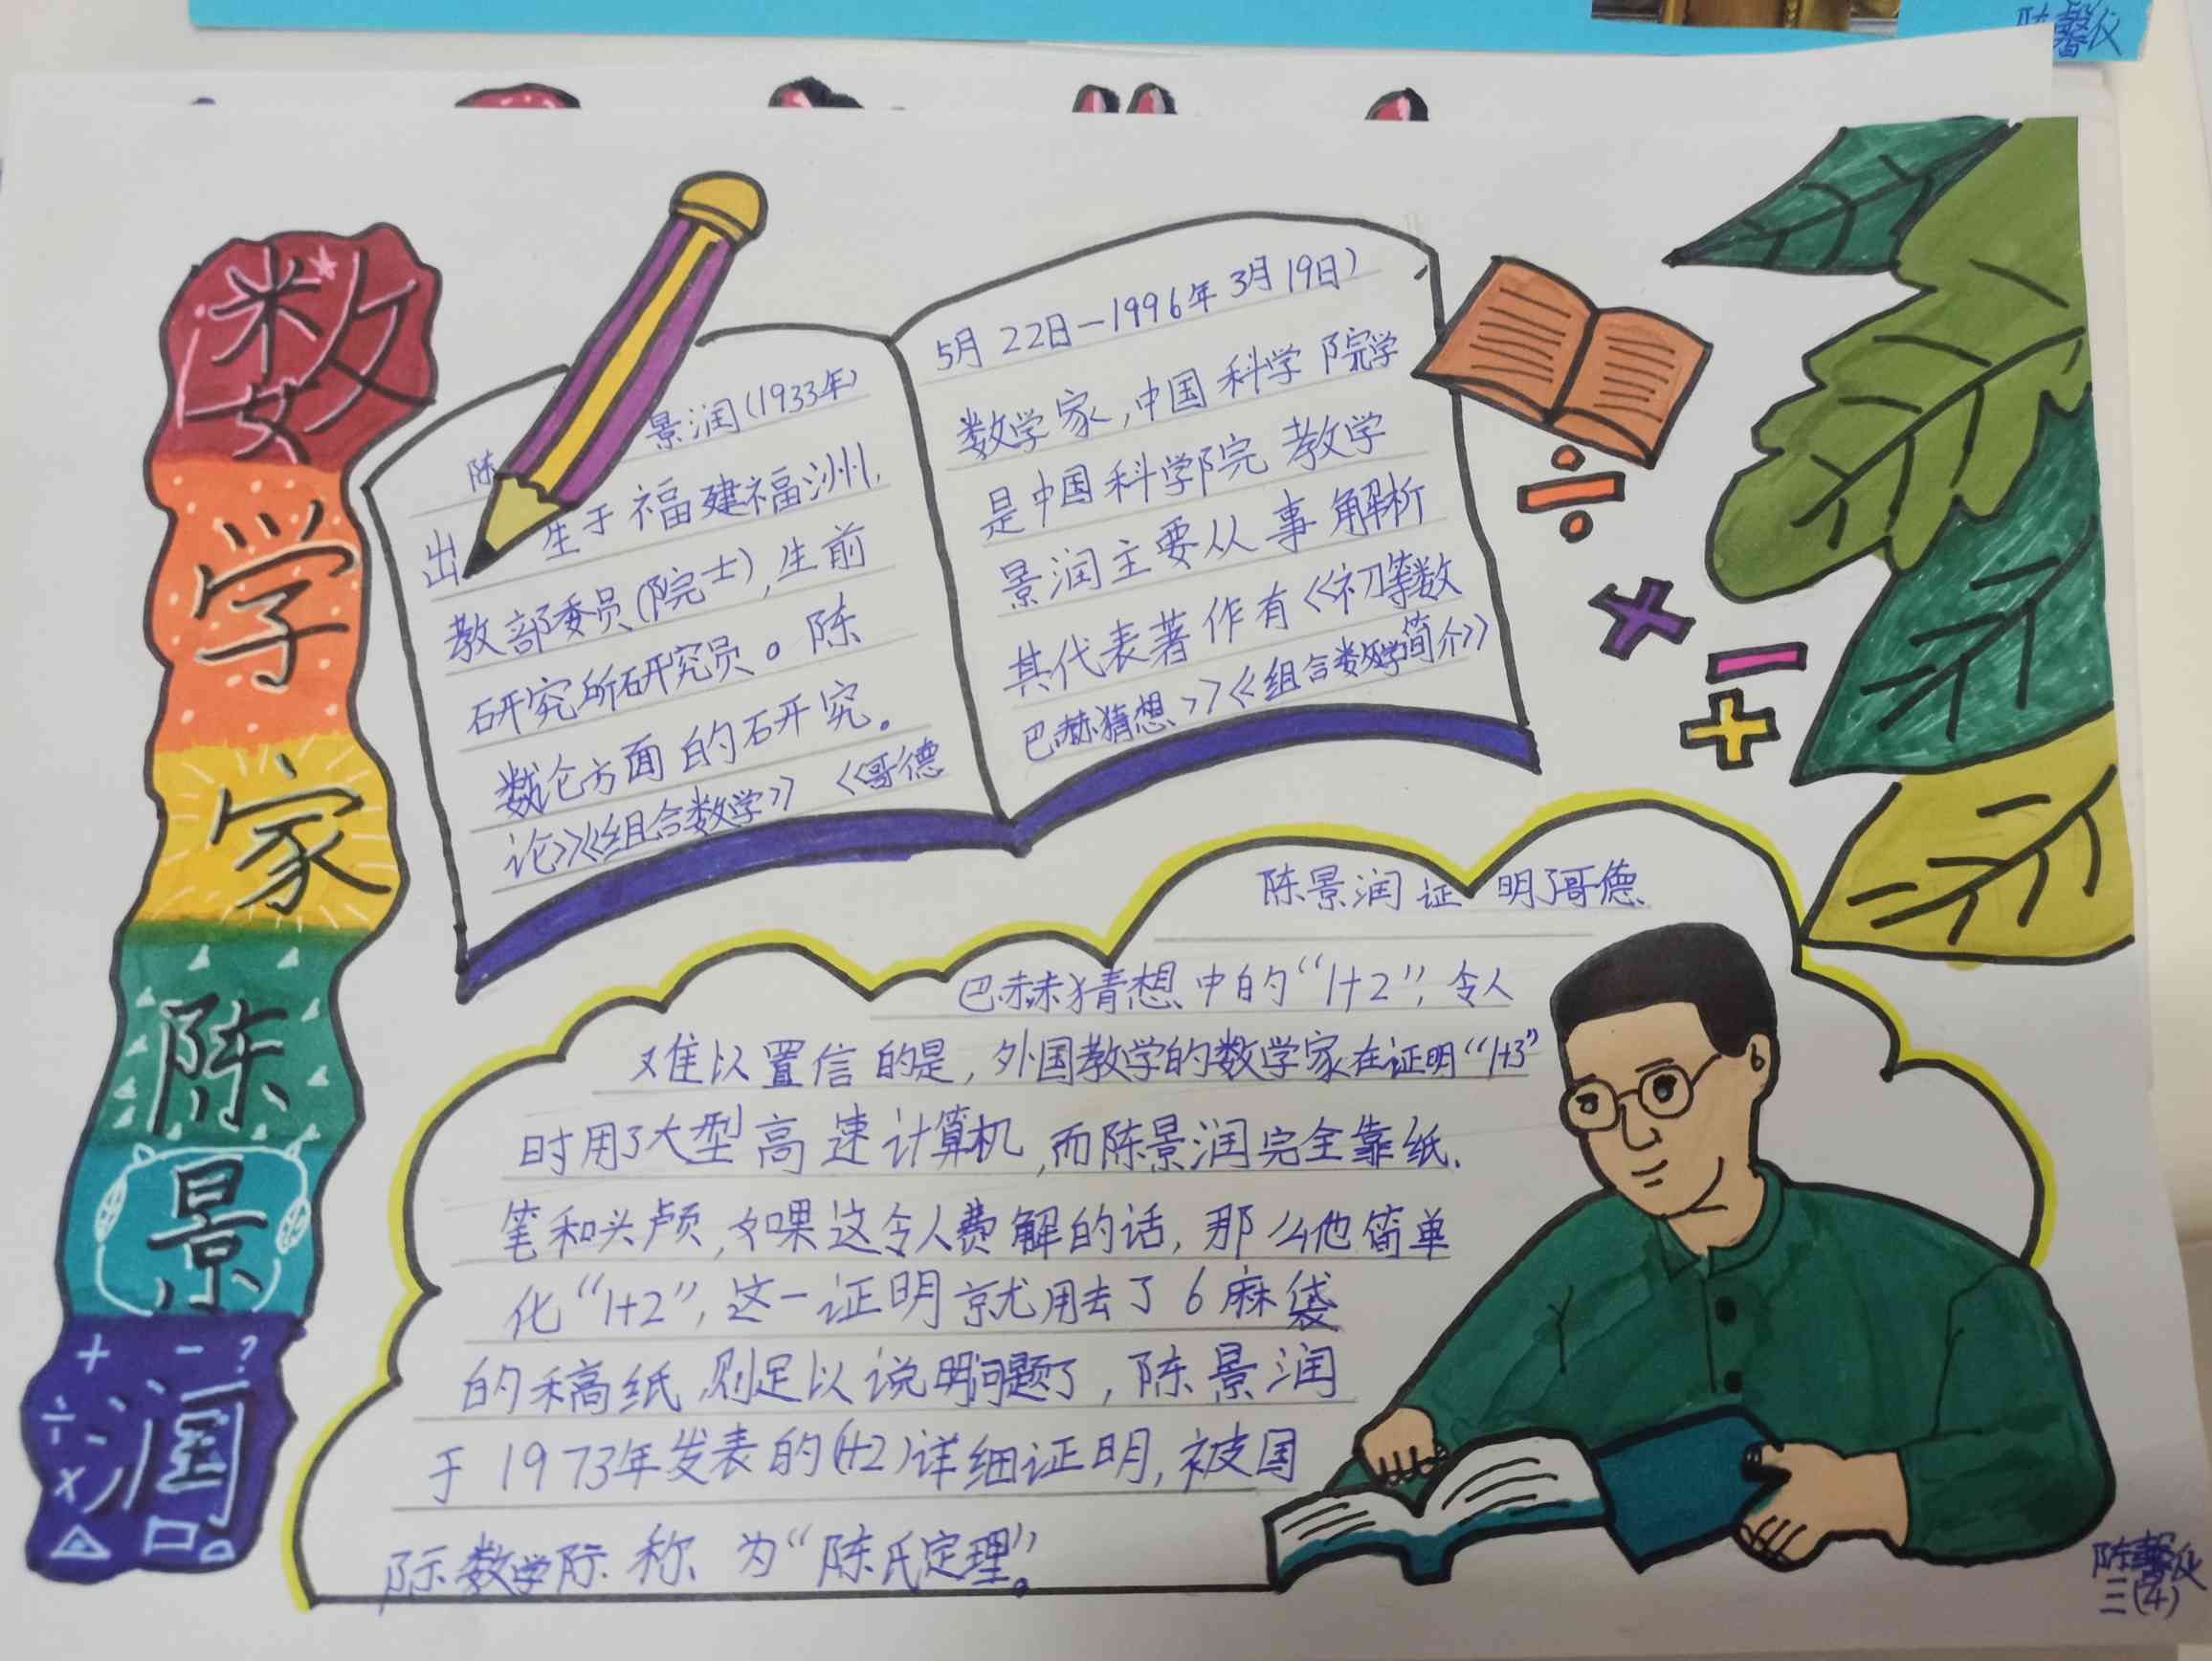 陈馨仪
数
学
家
陈
景
润
陈景润(1933年
5月22日—1996年3月19日)
出生于福建福洲,
数学家,中国科学院学
教部委员(院士),生前
是中国科学院教学
研究所研究员。陈
景润主要从事解析
数仑方面的研究。
其代表著作有《初等数
论》《组合数学》《哥德
巴赫猜想》《组合数学简介》
陈景润证明了哥德
巴赫猜想中的“1+2”,令人
难以置信的是,外国教学的数学家在证明“1+3”
时用了大型高速计算机,而陈景润完全靠纸、
笔和头颅,如果这令人费解的话,那么他简单
化“1+2”,这一证明就用去了6麻袋
的稿纸,则足以说明问题了,陈景润
于1973年发表的(1+2)详细证明,被国
际数学际称为“陈氏定理”。
陈馨仪
三(4)